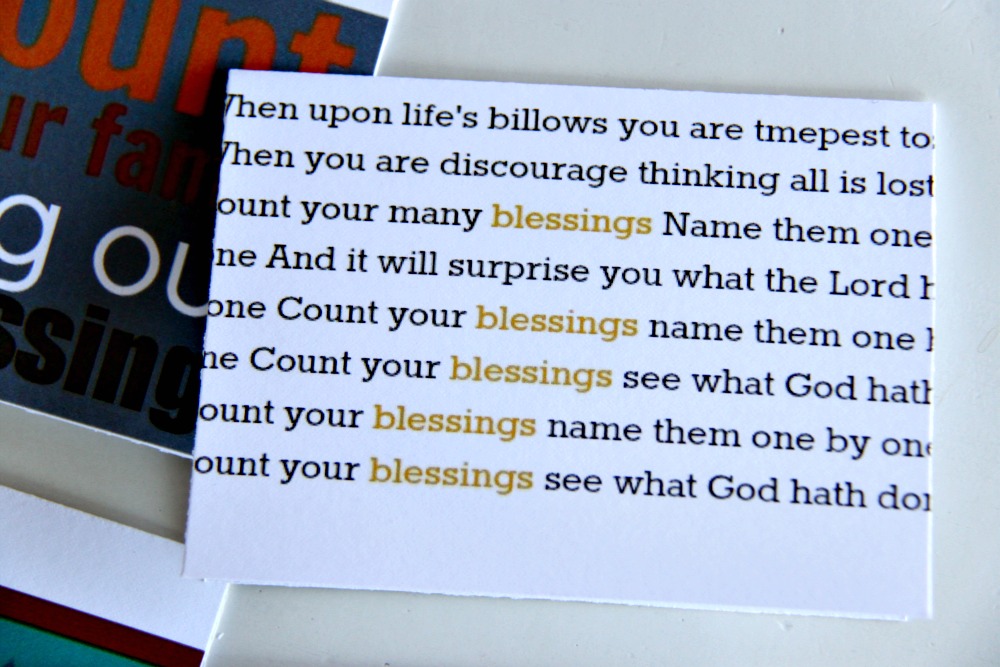 ount
ur fam
g ou
ssing
When upon life's billows you are tmepest tos
When you are discourage thinking all is lost
ount your many blessings Name them one
ne And it will surprise you what the Lord h
one Count your blessings name them one b
ne Count your blessings see what God hath
ount your blessings name them one by one
ount your blessings see what God hath don